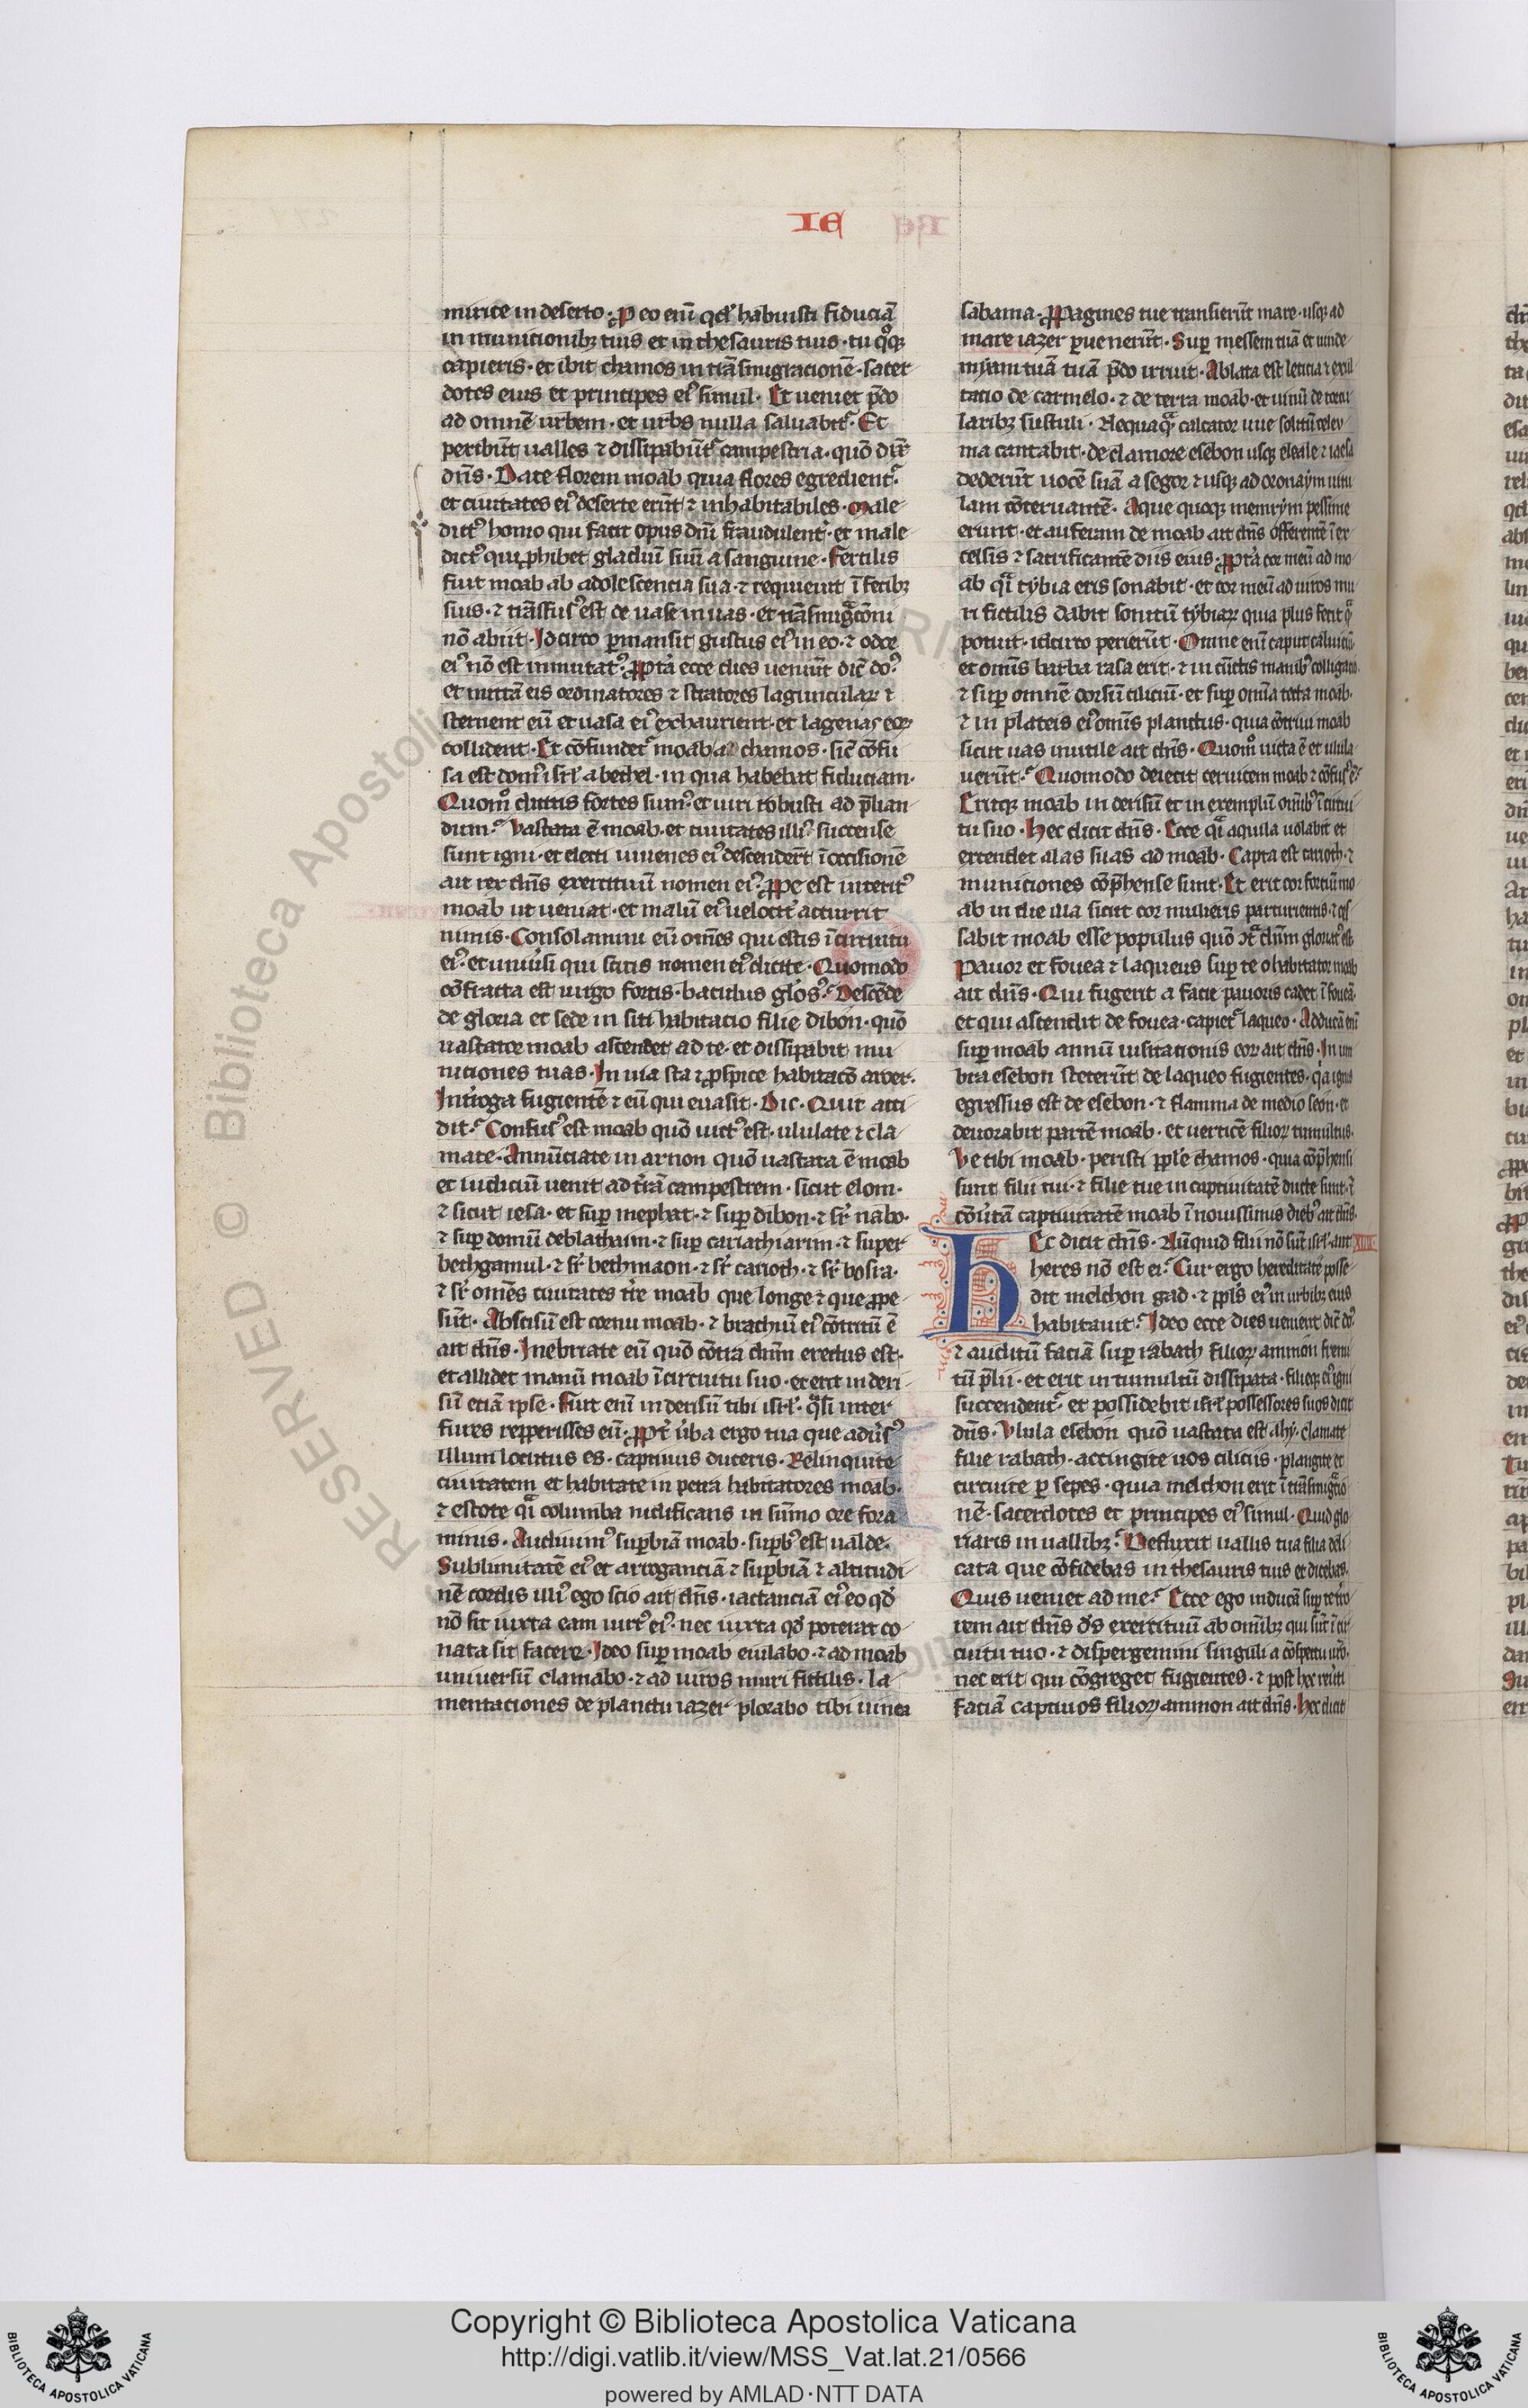 IE
mirice in deserto. ꝓ eo enī qd' habuisti fiduciā
in municionibꝫ tuis et in thesauris tuis. tu qͦqꝫ
capieris. et ibit chamos in trāsmigracionē. sacer
dotes eius et principes eiꝰ simul. Et ueniet p̄do
ad omnē urbem. et urbs nulla saluabit᷑. Et
peribūt ualles ⁊ dissipabūt᷑ campestria. quō dix̄
dn̄s. Date florem moab quia flores egredient᷑.
et ciuitates eiꝰ deserte erūt ⁊ inhabitabiles. Male
dictꝰ homo qui facit opus dn̄i fraudulent᷑. et male
dictꝰ qui ꝓhibet gladiū suū a sanguine. Fertilis
fuit moab ab adolescencia sua. ⁊ requieuit ī fecibꝫ
suis. ⁊ trāsfusꝰ est de uase in uas. et trāsmigͣcōni
nō abiit. Idcirco ꝑmansit gustus eiꝰ in eo. ⁊ odor
eiꝰ nō est inmutatꝰ. ꝓpt᷑a ecce dies ueniūt dic̄ dōs
et mittā eis ordinatores ⁊ stratores laguncularꝝ ⁊
sternent eū et uasa eiꝰ exhaurient. et lagenas eorꝝ
collident. Et cōfundet᷑ moab a chamos. sic̄ cōfu
sa est domꝰ isrl' a bethel. in qua habebat fiduciam.
Quomͦ dicitis fortes sumꝰ. et uiri robusti ad p̄lian
dum. Vastata ē moab. et ciuitates illiꝰ succense
sunt igni. et electi iuuenes eiꝰ descender̄t ī occisionē
ait rex dn̄s exercituū nomen eiꝰ. ꝓpe est interitꝰ
moab ut ueniat. et malū eiꝰ uelocit᷑ accurrit
nimis. Consolamini eū omēs qui estis ī circuitu
eiꝰ. et uniu᷑si qui scitis nomen eiꝰ dicite. Quomodo
cōfracta est uirga fortis. baculus gl'osꝰ. Descēde
de gloria et sede in siti habitacio filie dibon. quō
uastator moab ascendet ad te. et dissipabit mu
niciones tuas. In uia sta ⁊ ꝓspice habitacō aroer.
Int᷑roga fugientē ⁊ eū qui euasit. Dic. Quit acci
dit. Confusꝰ est moab quō uictꝰ est. ululate ⁊ cla
mate. Annūciate in arnon quō uastata ē moab
et iudiciū uenit ad t᷑rā campestrem. sicut elom.
⁊ sicut iesa. et suꝑ mephat. ⁊ suꝑ dibon. ⁊ sr̄ nabo.
⁊ suꝑ domū deblathaim. ⁊ suꝑ cariathiarim. ⁊ super
bethgamul. ⁊ sr̄ bethmaon. ⁊ sr̄ carioth. ⁊ sr̄ bosra.
⁊ sr̄ omēs ciuitates t᷑re moab que longe ⁊ que ꝓpe
sūt. Abscisū est cornu moab. ⁊ brachiū eiꝰ cōtritū ē
ait dn̄s. Inebriate eū quō cōtra dn̄m erectus est.
et allidet manū moab ī circuitu suo. et erit in deri
sū etiā ipse. Fuit enī in derisū tibi isrl'. qͣsi inter
fures repperisses eū. ꝓpt᷑ u᷑ba ergo tua que adu᷑sꝰ
illum locutus es. captiuus duceris. Relinquite
ciuitatem et habitate in petra habitatores moab.
⁊ estote qͣi columba nidificans in sūmo ore fora
minis. Audiuimꝰ suꝑbiā moab. suꝑbꝰ est ualde.
Sublimitatē eiꝰ et arroganciā ⁊ suꝑbiā ⁊ altitudi
nē cordis illiꝰ ego scio ait dn̄s. iactanciā eiꝰ eo qd'
nō sit iuxta eam uirtꝰ eiꝰ. nec iuxta qd' poterat co
nata sit facere. Ideo suꝑ moab eiulabo. ⁊ ad moab
uniuersū clamabo. ⁊ ad uiros muri fictilis. la
mentaciones de planctu iazer plorabo tibi uinea
sabama. ꝓpagines tue transierūt mare. usqꝫ ad
mare iazer ꝑuenerūt. Suꝑ messem tuā et uinde
myam tuā tuā p̄do irruit. Ablata est leticia ⁊ exul
tacio de carmelo. ⁊ de terra moab. et uinū de torcu
laribꝫ sustuli. Nequaqͣ calcator uue solitū celev
ma cantabit. de clamore esebon usqꝫ eleale ⁊ iaesa
dederūt uocē suā a segor ⁊ usqꝫ ad oronaym uitu
lam cōternantē. Aque quoqꝫ memrym pessime
erunt. et auferam de moab ait dn̄s offerentē ī ex
celsis ⁊ sacrificantē diis eius. ꝓpt᷑a cor meū ad mo
ab qͣi tybia eris sonabit. et cor meū ad uiros mu
ri fictilis dabit sonitū tybiarꝝ quia plus fecit qͣ
potuit. idcirco perierūt. Omne enī caput caluiciū
et omīs barba rasa erit. ⁊ in cūctis manibꝰ colligaco.
⁊ suꝑ omnē dorsū ciliciū. et suꝑ omīa tecta moab.
⁊ in plateis eiꝰ omīs planctus. quia cōtriui moab
sicut uas inutile ait dn̄s. Quomͦ uicta ē et ulula
uerūt. Quomodo deiecit ceruicem moab ⁊ cōfusꝰ ē
Eritqꝫ moab in derisū et in exemplū omībꝰ ī circui
tu suo. Hec dicit dn̄s. Ecce qͣi aquila uolabit et
extendet alas suas ad moab. Capta est carioth. ⁊
municiones cōp̄hense sunt. Et erit cor fortiū mo
ab in die illa sicut cor mulieris parturientis. ⁊ ces
sabit moab esse populus quō ꝯtͣ dn̄m gloriatꝰ est
Pauor et fouea ⁊ laqueus suꝑ te o habitator moab
ait dn̄s. Qui fugerit a facie pauoris cadet ī foueā.
et qui ascendit de fouea. capiet᷑ laqueo. Adducā enī
suꝑ moab annū uisitacionis eorꝝ ait dn̄s. In um
bra esebon steterūt de laqueo fugientes. qͥa ignis
egressus est de esebon. ⁊ flamma de medio seon. et
deuorabit partē moab. et uerticē filiorꝝ tumultus.
Ve tibi moab. peristi ppl'e chamos. quia cōp̄hensi
sunt filii tui. ⁊ filie tue in captiuitatē ducte sunt. ⁊
cōu᷑tā captiuitatē moab ī nouissimis diebꝰ ait dn̄s.
HEc dicit dn̄s. Nūquid filii nō sūt isrl'. aut
heres nō est ei. Cur ergo hereditatē posse
dit melchon gad. ⁊ ppl's eiꝰ in urbibꝫ eius
habitauit. Ideo ecce dies uenient dic̄ dōs
⁊ auditū faciā suꝑ rabath filiorꝝ ammon fremi
tū p̄lii. et erit in tumultū dissipata. filieqꝫ eiꝰ igni
succendent᷑. et possidebit isrl' possessores suos dicit
dn̄s. Vlula esebon quō uastata est ahy. clamate
filie rabath. accingite uos ciliciis. plangite et
circuite ꝑ sepes. quia melchon erit ī trāsmigͣcio
nē. sacerdotes et principes eiꝰ simul. Quid glo
riaris in uallibꝫ. Defluxit uallis tua filia deli
cata que cōfidebas in thesauris tuis et dicebas.
Quis ueniet ad me. Ecce ego inducā suꝑ te t᷑ro
rem ait dn̄s d's exercituū ab omībꝫ qui sūt ī cir
cuitu tuo. ⁊ dispergemini singuli a cōspectu uro.
nec erit qui cōgreget fugientes. ⁊ post hec reu᷑ti
faciā captiuos filiorꝝ ammon ait dn̄s. Hec dicit
RESERVED © Biblioteca Apostolica
Copyright © Biblioteca Apostolica Vaticana
http://digi.vatlib.it/view/MSS_Vat.lat.21/0566
powered by AMLAD·NTT DATA
BIBLIOTECA APOSTOLICA VATICANA
BIBLIOTECA APOSTOLICA VATICANA